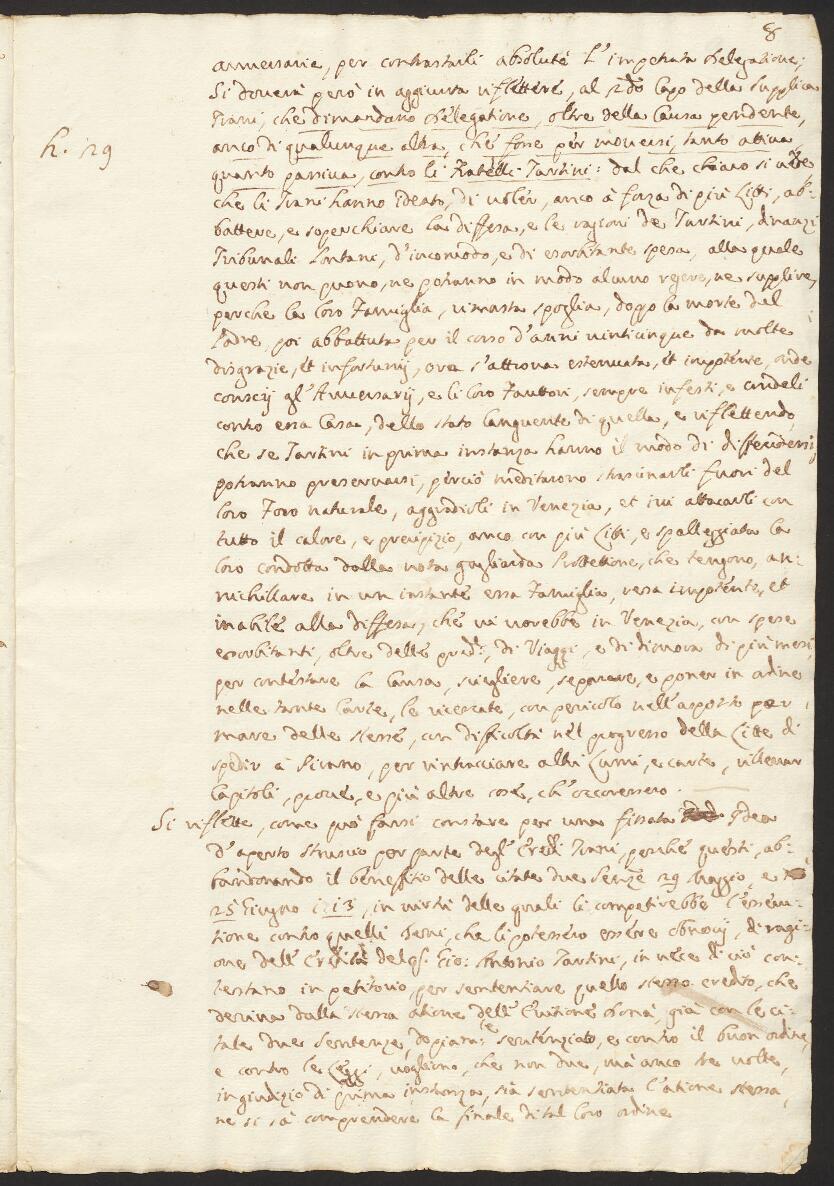 8
auuersarie, per contrastarli absolutè l'impetrata delegatione;
Si douerà però in aggiunta riflettere, al 2do Capo della Supplica
Trani, che dimandano delegatione, oltre della Causa pendente,
anco di qualunque altra, che fosse per mouersi, tanto attiua
h. 29
quanto passiua, contro li Fratelli Tartini: dal che chiaro si uede
che li Trani hanno ideato, di uoler, anco à forza di più Litti, ab-
battere, e soperchiare la diffesa, e le ragioni de Tartini, dinanzi
Tribunali lontani, d'incomodo, e di esorbitante spesa, alla quale
questi non puono, ne potranno in modo alcuno regere, ne supplire,
perche la loro Famiglia, rimasta spoglia, doppo la morte del
Padre, poi abbattuta per il corso d'anni uinticinque da molte
disgrazie, et infortunij, ora s'attroua estenuata, et impotente, onde
conscij gl'Auuersarij, e li loro Fauttori, sempre infesti, e crudeli
contro essa Casa, dello stato languente di quella, e riflettendo,
che se Tartini in prima instanza hanno il modo di diffendersi,
potranno preseruarsi, perciò meditarono strascinarli fuori del
loro Foro naturale, aggradirli in Venezia, et iui attacarli con
tutto il calore, e precipizio, anco con più Litti, e spalleggiata la
loro condotta dalla nota gagliarda Protettione, che tengono, an-
nichillare in un instante essa Famiglia, resa impotente, et
inabile alla diffesa, che ui uorebbe in Venezia, con spese
esorbitanti, oltre delle pred:e, di Viaggi, e di dimora di più mesi,
per contestare la Causa, sciegliere, separare, e poner in ordine
nelle tante Carte, le ricercate, con pericolo nell'asporto per
mare delle stesse, con difficoltà nel progresso della Litte di
spedir à Pirano, per rintracciare altri Lumi, e carte, rilleuar
Capitoli, proue, e più altre cose, ch'occoressero.
Si riflette, come può farsi constare per una fissata Idea
d'aperto strusio per parte degl'Eredi Trani, perche questi, ab-
bandonando il beneffitio delle citate due Senze 29 Maggio, e
25 Giugno 1713, in uirtù delle quali li competirebbe l'essecu-
tione contro quelli Beni, che li potessero essere obnoxij, di ragi-
one dell'Eredità del q. Gio: Antonio Tartini, in uece di ciò con-
testano in petitorio, per sentenziare quello stesso credito, che
deriua dalla stessa atione dell'Euitione Donà, già con le ci-
tate due Sentenze, dopiam:te sentenziato, e contro il buon ordine,
e contro le Leggi, uogliono, che non due, mà anco tre uolte,
in giudizio di prima instanza, sia sentenziata l'atione stessa,
ne si sà comprendere la finale di tal loro ordine